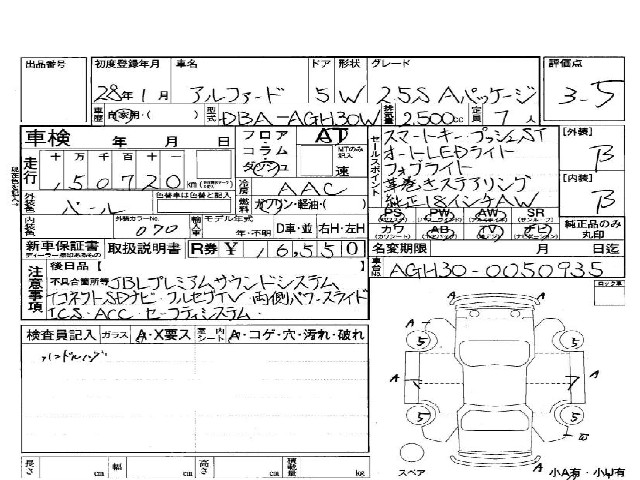 出品番号 初度登録年月 車名 ドア 形状 グレード 評価点
28年1月 アルファード 5 W 2.5S Aパッケージ 3-5
車歴 自家用・( ) 型式 DBA-AGH30W 排気量 2,500cc 定員 7人
車検 年 月 日 フロア AT セールスポイント スマートキー プッシュST 【外装】
走行 十万千百十一 コラム MTのみ記入 オートLEDライト B
,50720 km ダッシュ 速 フォグライト 【内装】
冷房 AAC 革巻きステアリング B
外装色 パール 色替車は色替と記入 燃料 ガソリン・軽油・( ) 純正18インチAW
内装色 外装カラーNo. 070 輸入車 モデル年式 年・不明 D車・並 右H・左H PS PW AW SR
カワ AB TV ナビ 純正品のみ丸印
新車保証書 取扱説明書 R券 ¥ 16,550 名変期限 月 日迄
ディーラー印のあるもの
注意事項 後日品【 】 車台No. AGH30-0050935
不具合箇所等 JBLプレミアムサウンドシステム
T.コネクトSDナビ・フルセグTV・両側パワースライド
ICS・ACC・セーフティシステム
検査員記入 ガラス A・X要ス 室内シート A・コゲ・穴・汚れ・破れ
A A A A A
5 5 5 5
7
スペア
小A有・小U有
長さ cm 幅 cm 高さ cm 積載量 kg